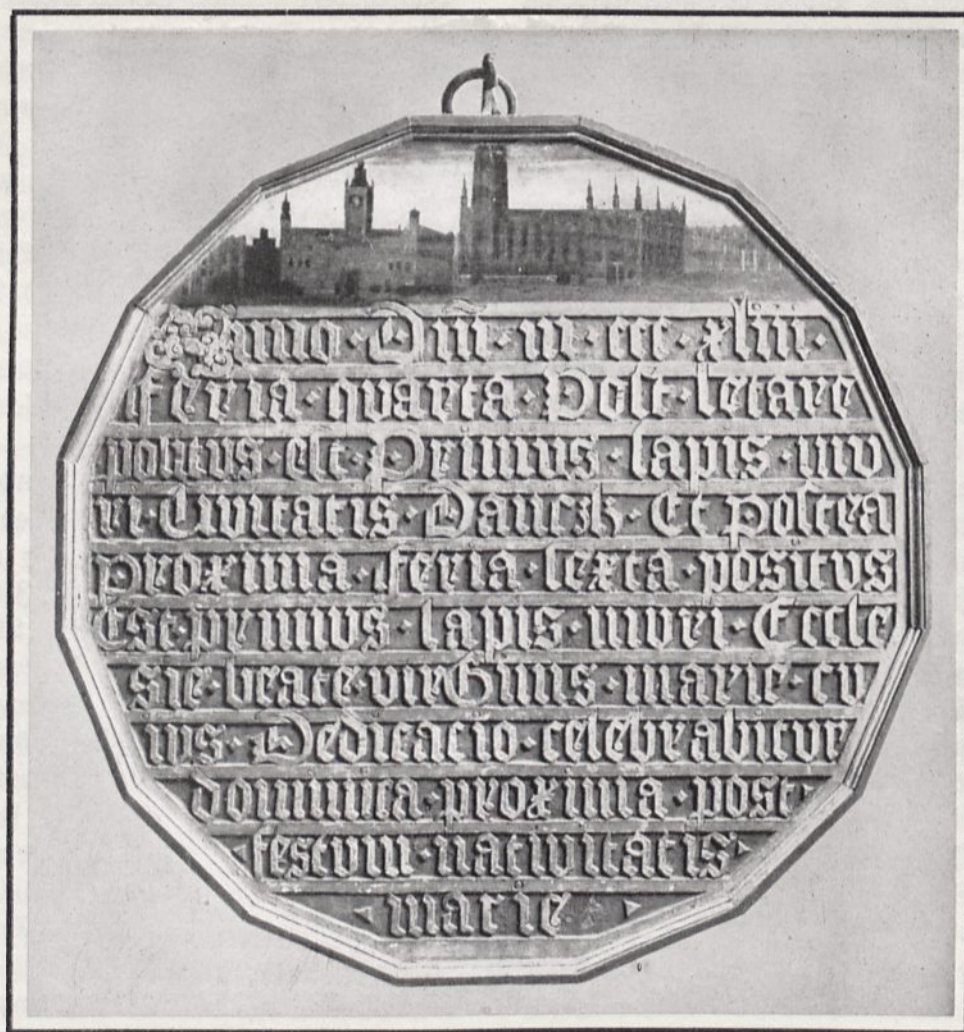 Anno · Dn̄i · m · ccc · xliii ·
feria · quarta · Post · letare
positus · est · Primus · lapis · mu
ri · Civitatis · Danczk · Et postea
proxima · feria · sexta · positus
Est · primus · lapis · muri · Eccle
sie · beate · virGinis · marie · cu
ius · Dedicacio · celebrabitur
dominica · proxima · post ·
festum · nativitatis
marie